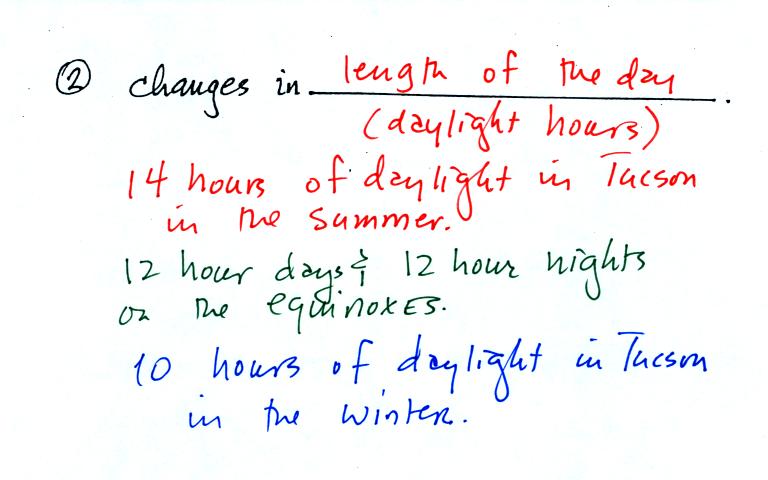 ② changes in length of the day.
(daylight hours)
14 hours of daylight in Tucson
in the summer.
12 hour days & 12 hour nights
on the equinoxes.
10 hours of daylight in Tucson
in the winter.